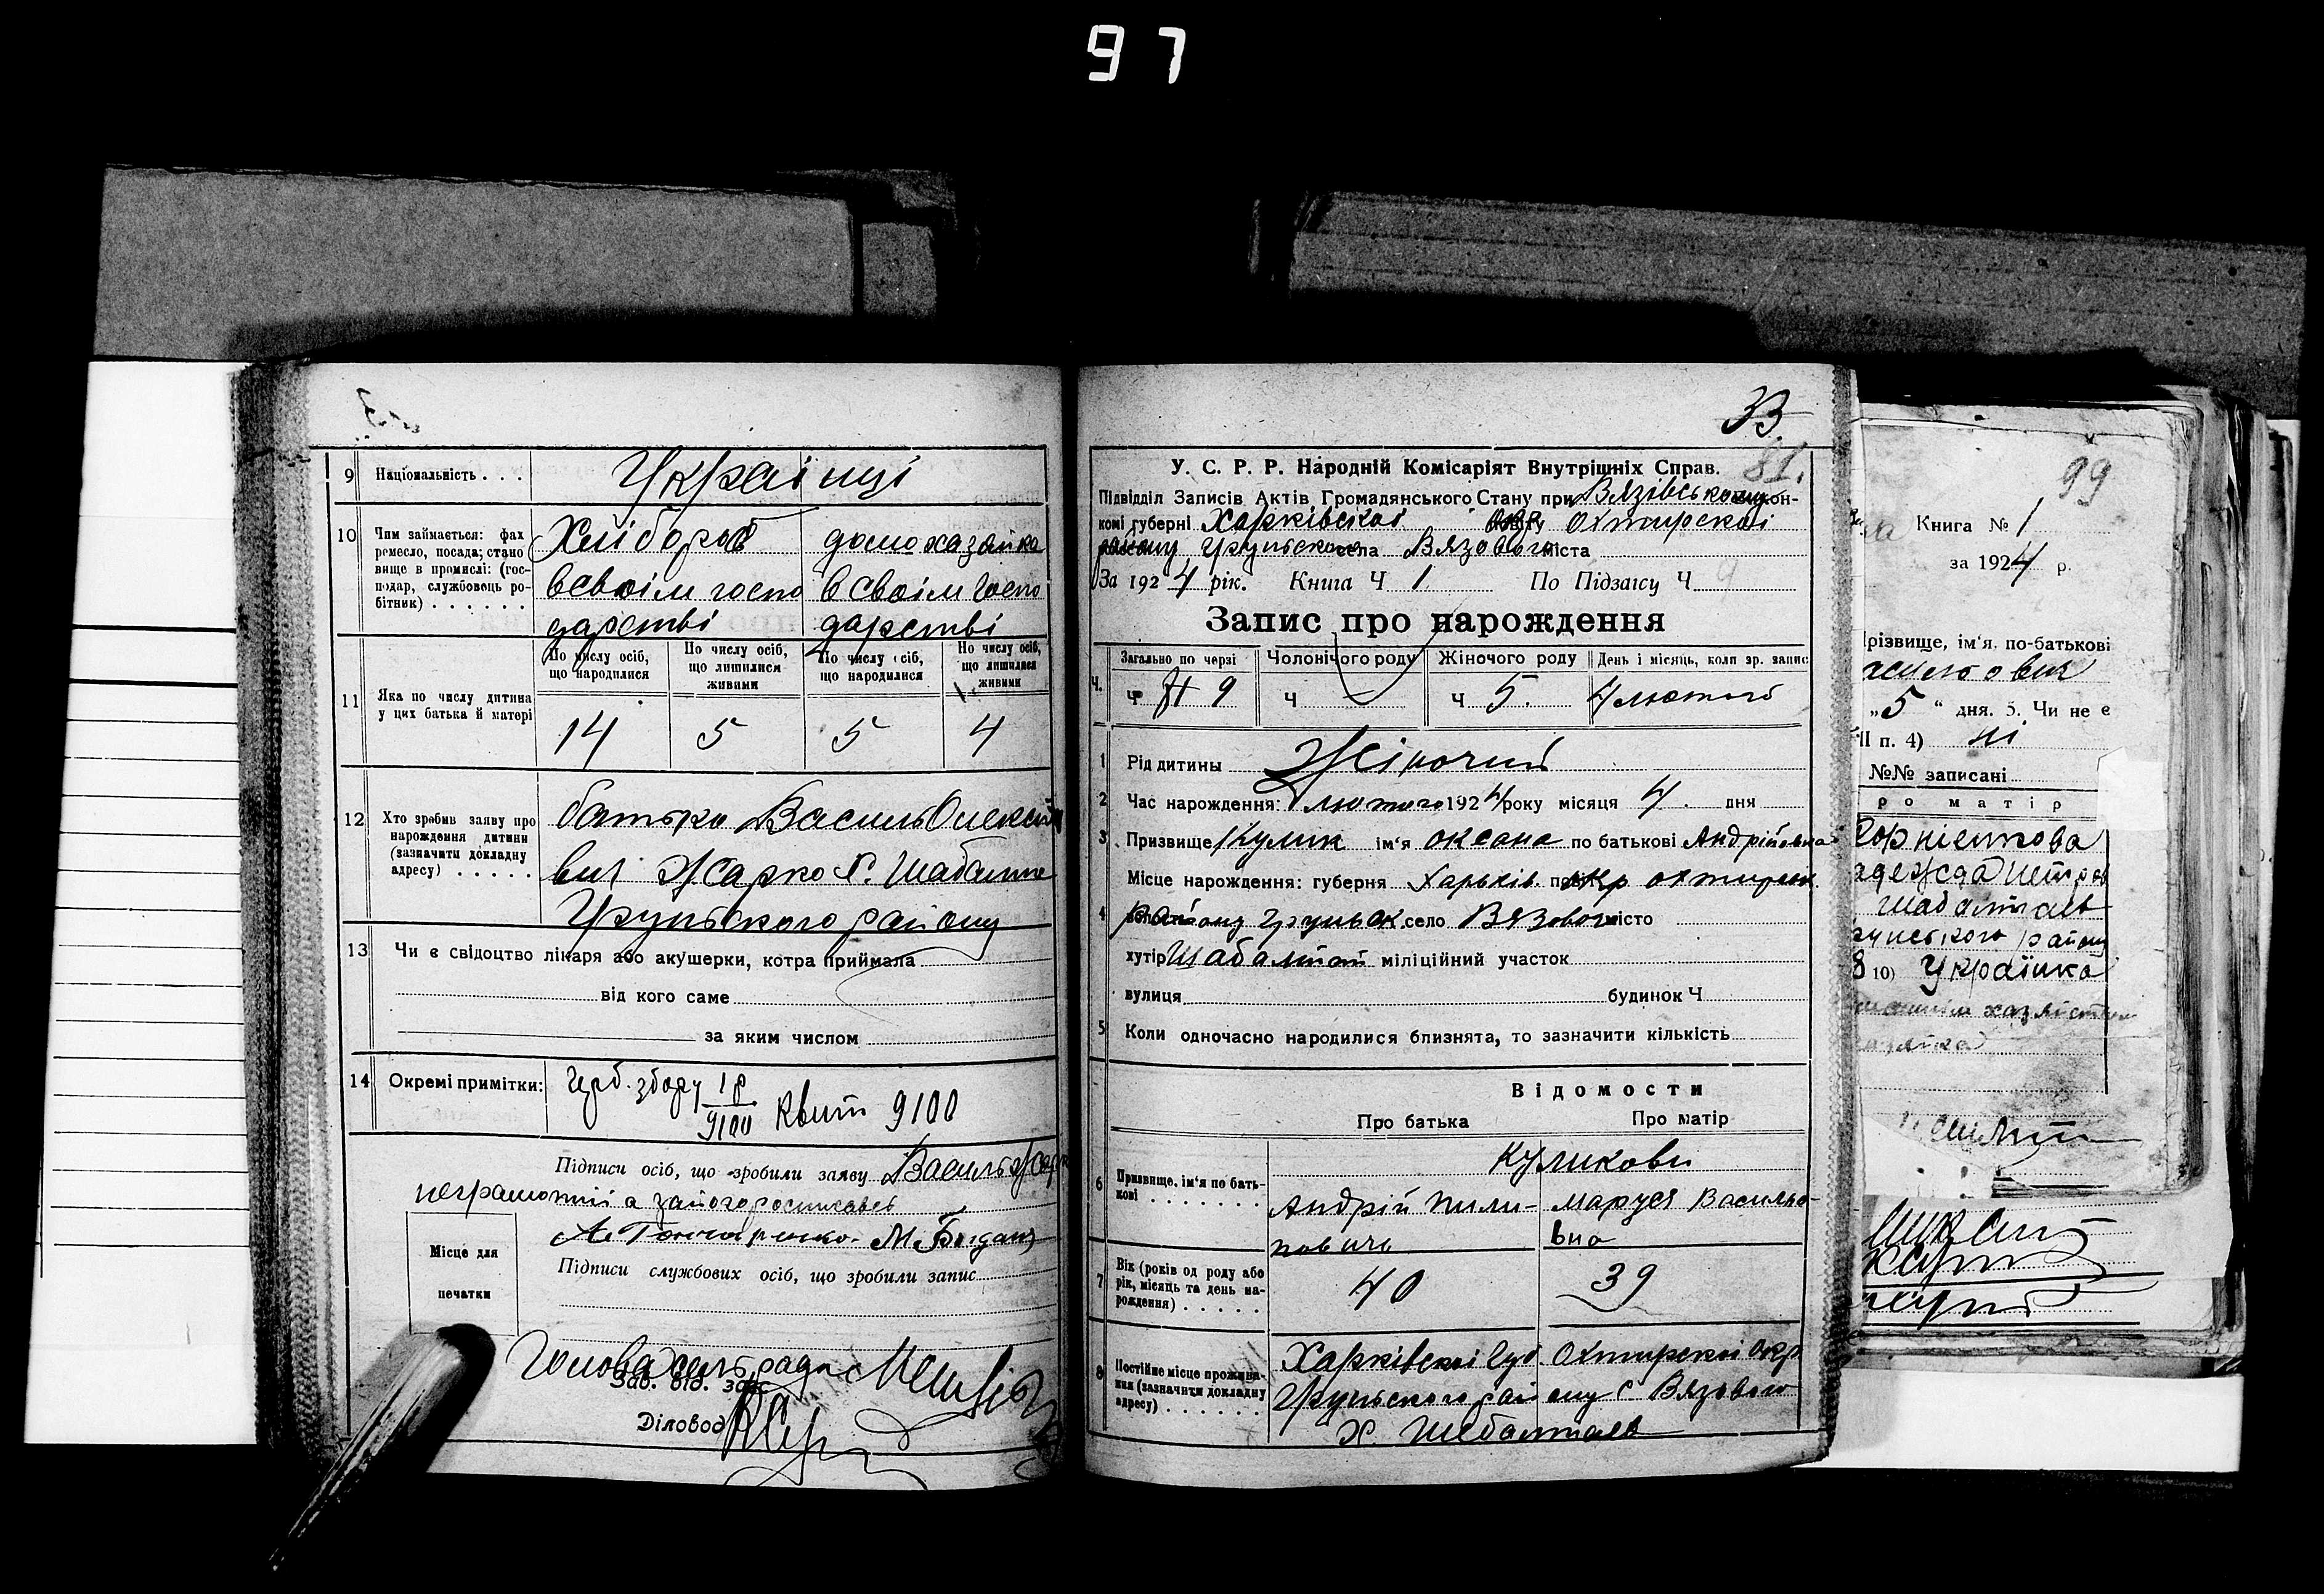 97
9 Національність . . . Українці
10 Чим займається: фах
ремесло, посада; стано
вище в промислі: (гос-
подар, службовець ро-
бітник) . . . . . .
Хліборob
всвоім госпо
дарстві
домохазайка
в своім госпо
дарстві
11 Яка по числу дитина
у цих батька й матері
По числу осіб,
що народилися
По числу осіб,
що лишилися
живими
По числу осіб,
що народилися
По числу осіб,
що лишилися
живими
14 5 5 4
12 Хто зробив заяву про
нарождення дитини
(зазначити докладну
адресу) . . . . .
батько Василь Олексій
вич Жарко Х. Шабалтае
Грунського району
13 Чи є свідоцтво лікаря або акушерки, котра приймала
від кого саме
за яким числом
14 Окремі примітки: Герб. збору 1р
9100 Квит 9100
Підписи осіб, що зробили заяву Василь Жарк
неграмотний а зайого росписавсь
А. Гончаренко. М. Богдан
Місце для
печатки
Підписи службових осіб, що зробили запис
Голова сельради
Зав. від. зап
Діловод
33
81.
У. С. Р. Р. Народній Комісаріят Внутрішніх Справ.
Підвідділ Записів Актів Громадянського Стану при Вязівському викон-
комі губерні Харківскоі Окр Охтирскоі
району Грунського села Вязового міста
За 1924 рік. Книга Ч 1 По Підзаісу Ч 9
Запис про нарождення
Ч. Загально по черзі Чолонічого роду Жіночого роду День і місяць, коли зр. запис
Ч 9 Ч Ч 5. 4 лютого
1 Рід дитины Жіночий
2 Час нарождення: лютого 1924 року місяця 4. дня
3 Призвище Кулик ім'я оксана по батькові Андрійовна
Місце нарождення: губерня Харьків. окр охтирськ
4 району Грунськ. село Вязового місто
хутір Шабалтат міліційний участок
вулиця будинок Ч
5 Коли одночасно народилися близнята, то зазначити кількість
Відомости
Про батька Про матір
6 Призвище, ім'я по бать-
кові . . . . . .
Куликови
Андрій Пили-
повичь
маруся Василье-
вна
7 Вік (років од роду або
рік, місяць та день на-
рождення) . . . . .
40 39
8 Постійне місце прожива-
ння (зазначити докладну
адресу) . . . . . .
Харківскоі Губ Охтирскоі окр
Грунського району с Вязового
х. Шебалтаев
99
Книга № 1
за 1924 р.
різвище, ім'я, по-батькові
„5“ дня. 5. Чи не є
II п. 4) ні
№№ записані
ро матір
Корнієнкова
адежда Петров
Шабалтаєв
рунського району
8 10) Українка